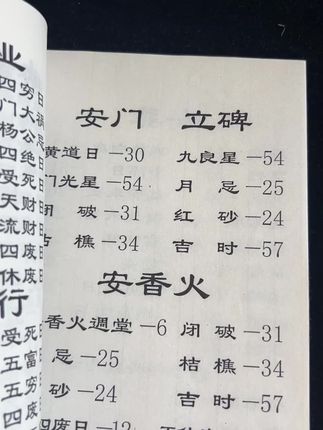 业
四穷日
门大祸
杨公忌
四绝日
受死日
天财日
流财日
四废日
休废日
行
受死
五富
五穷
四废
安门 立碑
黄道日—30 九良星—54
门光星—54 月忌—25
闭破—31 红砂—24
吉樵—34 吉时—57
安香火
香火週堂—6 闭破—31
忌—25 桔樵—34
砂—24 吉时—57
四废日—12